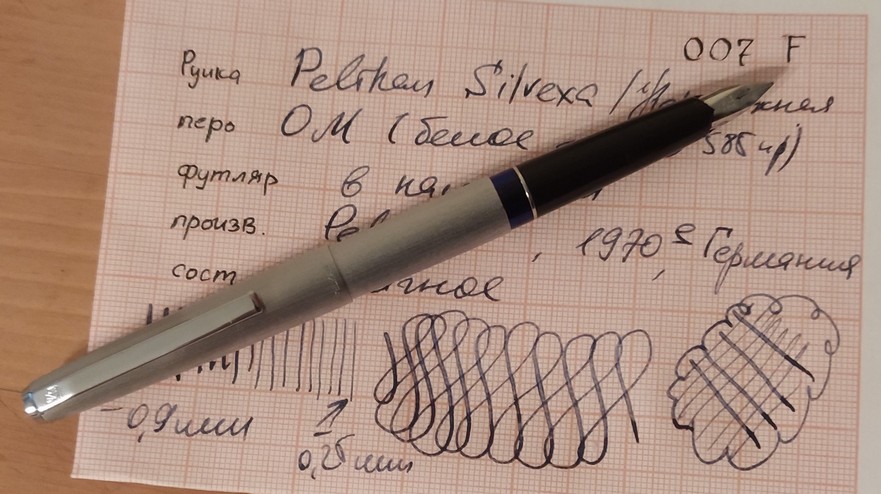 007 F
Ручка Pelikan Silvexa /
перо ОМ (белое 585 пр)
футляр в
произв. , 1970е, Германия
сост
0,9 мм
0,25 мм